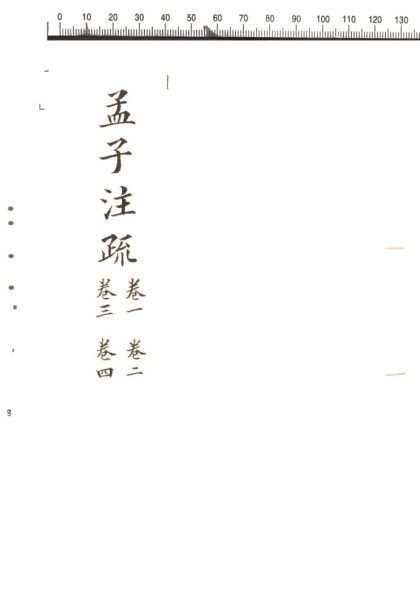 0 10 20 30 40 50 60 70 80 90 100 110 120 130
孟子注疏
卷一 卷二
卷三 卷四